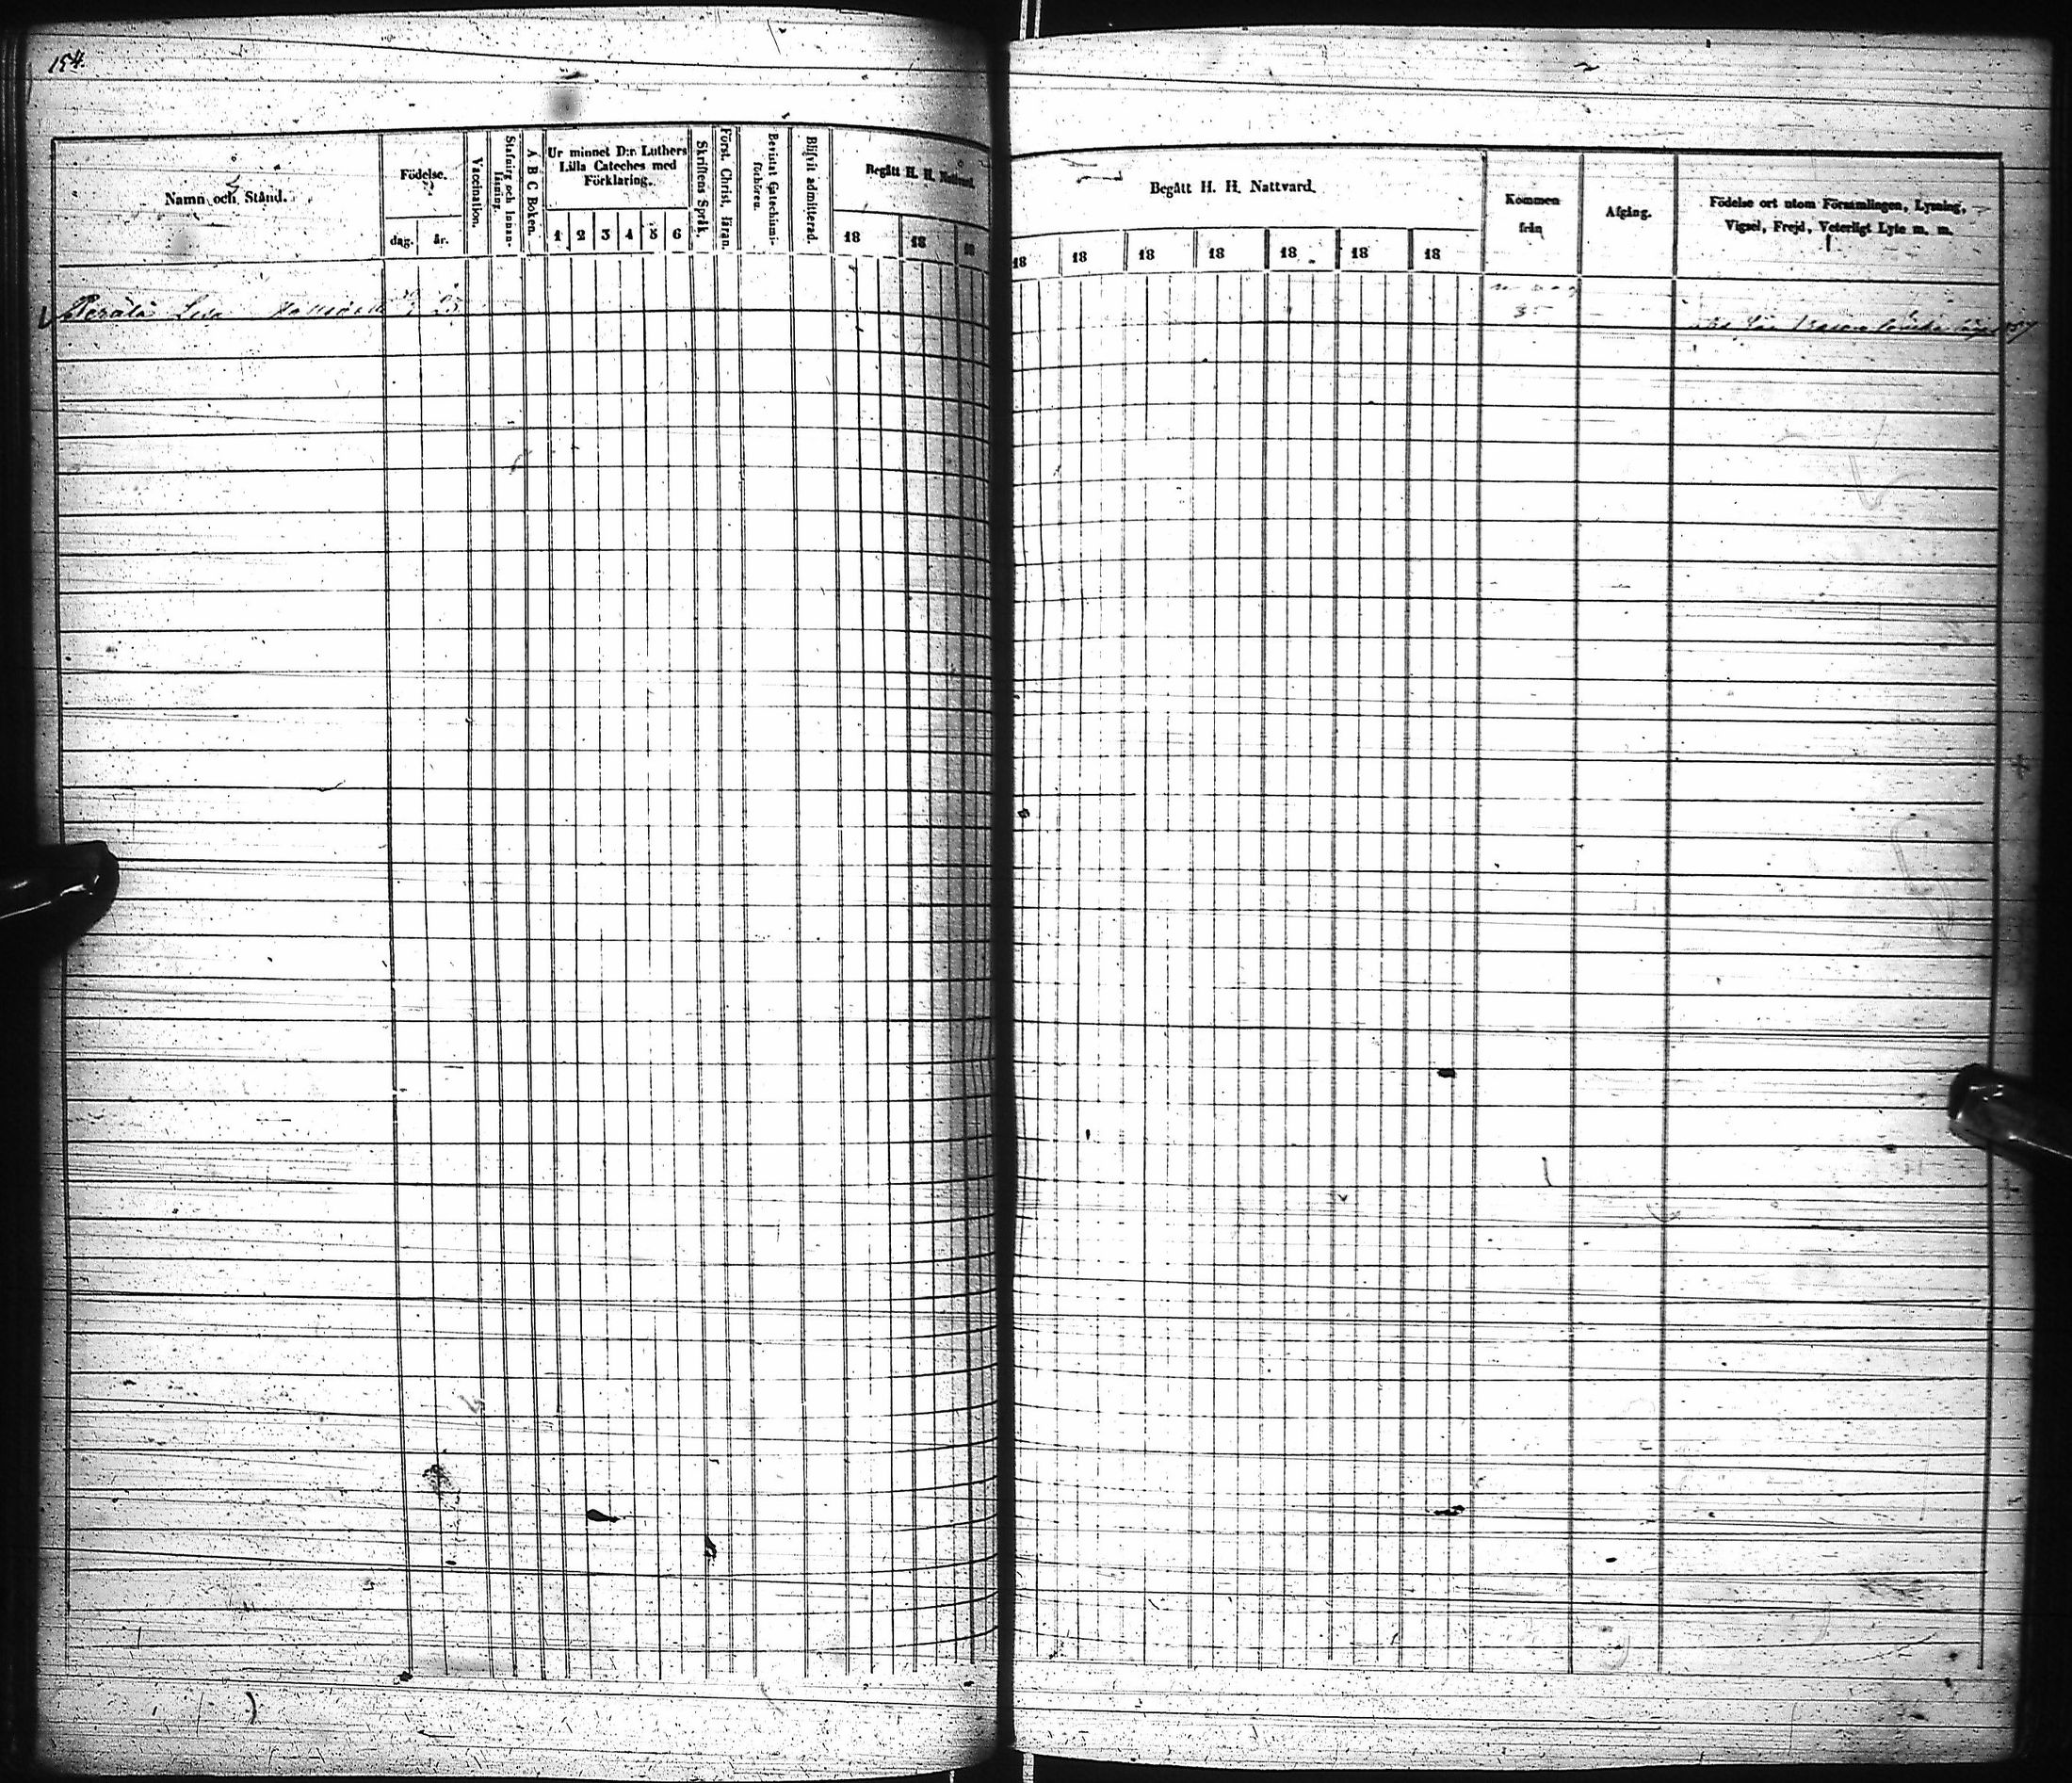 154.
Namn och Stånd.
Födelse.
dag.
år.
Vaccination.
Stafning och Innan-
läsning.
A B C Boken.
Ur minnet D:r Luthers
Lilla Cateches med
Förklaring.
1 2 3 4 5 6
Skriftens Språk.
Först. Christ. läran.
Bevistat Catechismi-
förhören.
Blifvit admitterad.
Begått H. H. Nattvard.
18 18 18
Begått H. H. Nattvard.
18 18 18 18 18 18 18
Kommen
från
Afgång.
Födelse ort utom Församlingen, Lysning,
Vigsel, Frejd, Veterligt Lyte m. m.
Perälä Lisa